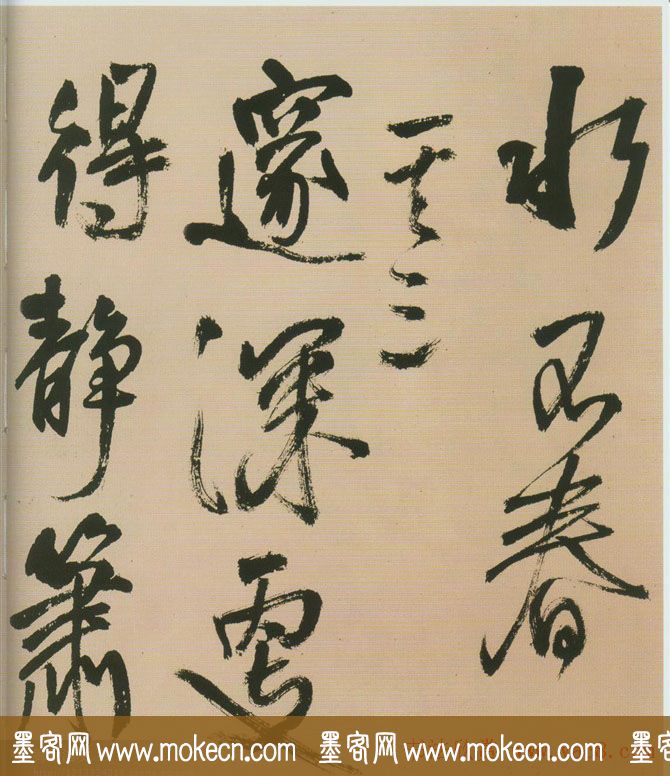 水春
其三
邃深
得静簫
墨客网 www.mokecn.com 墨客网 www.mokecn.com 墨客